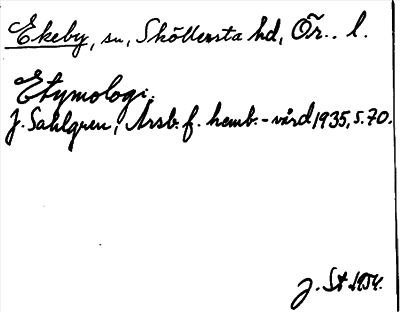 Ekeby, sn, Sköllersta hd, Ör.. l.
Etymologi.
J. Sahlgren, Årsb. f. hemb.-vård 1935, s. 70.
J. St. 1954.